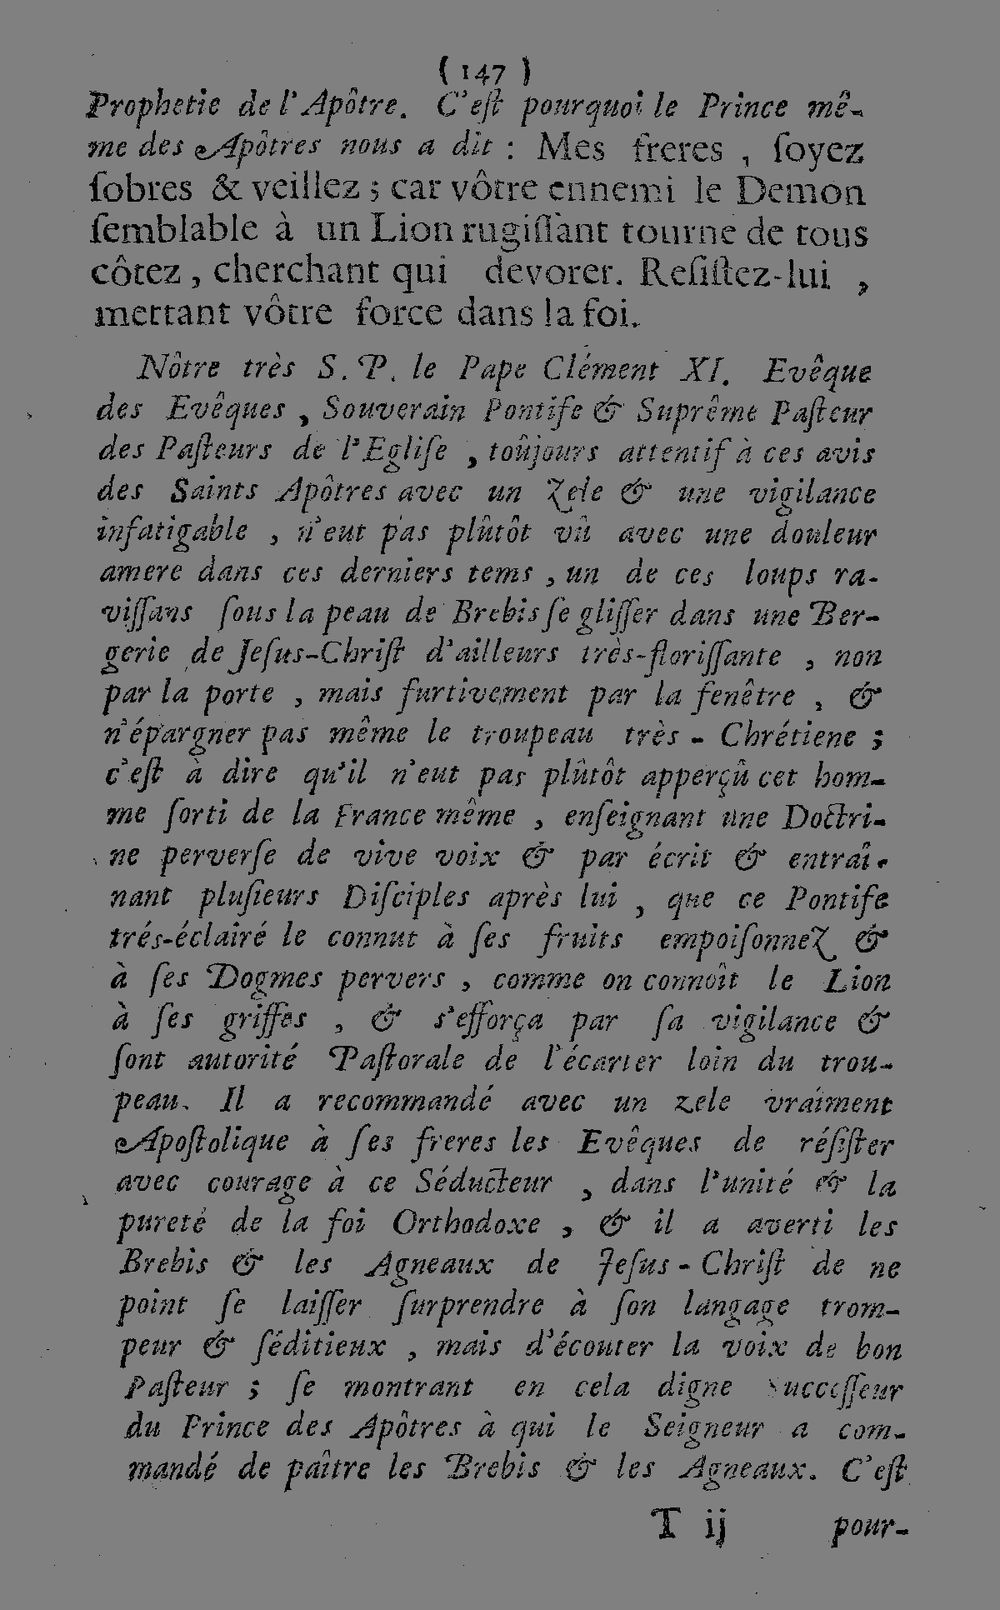 ( 147 )
Prophetie de l'Apôtre. C'eſt pourquoi le Prince mê-
me des Apôtres nous a dit : Mes freres , ſoyez
ſobres & veillez ; car vôtre ennemi le Demon
ſemblable à un Lion rugiſſant tourne de tous
côtez , cherchant qui devorer. Reſiſtez-lui ,
mettant vôtre force dans la foi.
Nôtre très S. P. le Pape Clément XI. Evêque
des Evêques , Souverain Pontife & Suprême Paſteur
des Paſteurs de l'Egliſe , toûjours attentif à ces avis
des Saints Apôtres avec un Zele & une vigilance
infatigable , n'eut pas plûtôt vû avec une douleur
amere dans ces derniers tems , un de ces loups ra-
viſſans ſous la peau de Brebis ſe gliſſer dans une Ber-
gerie de Jeſus-Chriſt d'ailleurs très-floriſſante , non
par la porte , mais furtivement par la fenêtre , &
n'épargner pas même le troupeau très - Chrétiene ;
c'eſt à dire qu'il n'eut pas plûtôt apperçû cet hom-
me ſorti de la France même , enſeignant une Doctri-
ne perverſe de vive voix & par écrit & entraî-
nant pluſieurs Diſciples après lui , que ce Pontife
trés-éclairé le connut à ſes fruits empoiſonnez &
à ſes Dogmes pervers , comme on connoît le Lion
à ſes griffes , & s'efforça par ſa vigilance &
ſont autorité Paſtorale de l'écarter loin du trou-
peau. Il a recommandé avec un zele vraiment
Apoſtolique à ſes freres les Evêques de réſiſter
avec courage à ce Séducteur , dans l'unité & la
pureté de la foi Orthodoxe , & il a averti les
Brebis & les Agneaux de Jeſus - Chriſt de ne
point ſe laiſſer ſurprendre à ſon langage trom-
peur & ſéditieux , mais d'écouter la voix de bon
Paſteur ; ſe montrant en cela digne Succeſſeur
du Prince des Apôtres à qui le Seigneur a com-
mandé de paître les Brebis & les Agneaux. C'eſt
T ij pour-